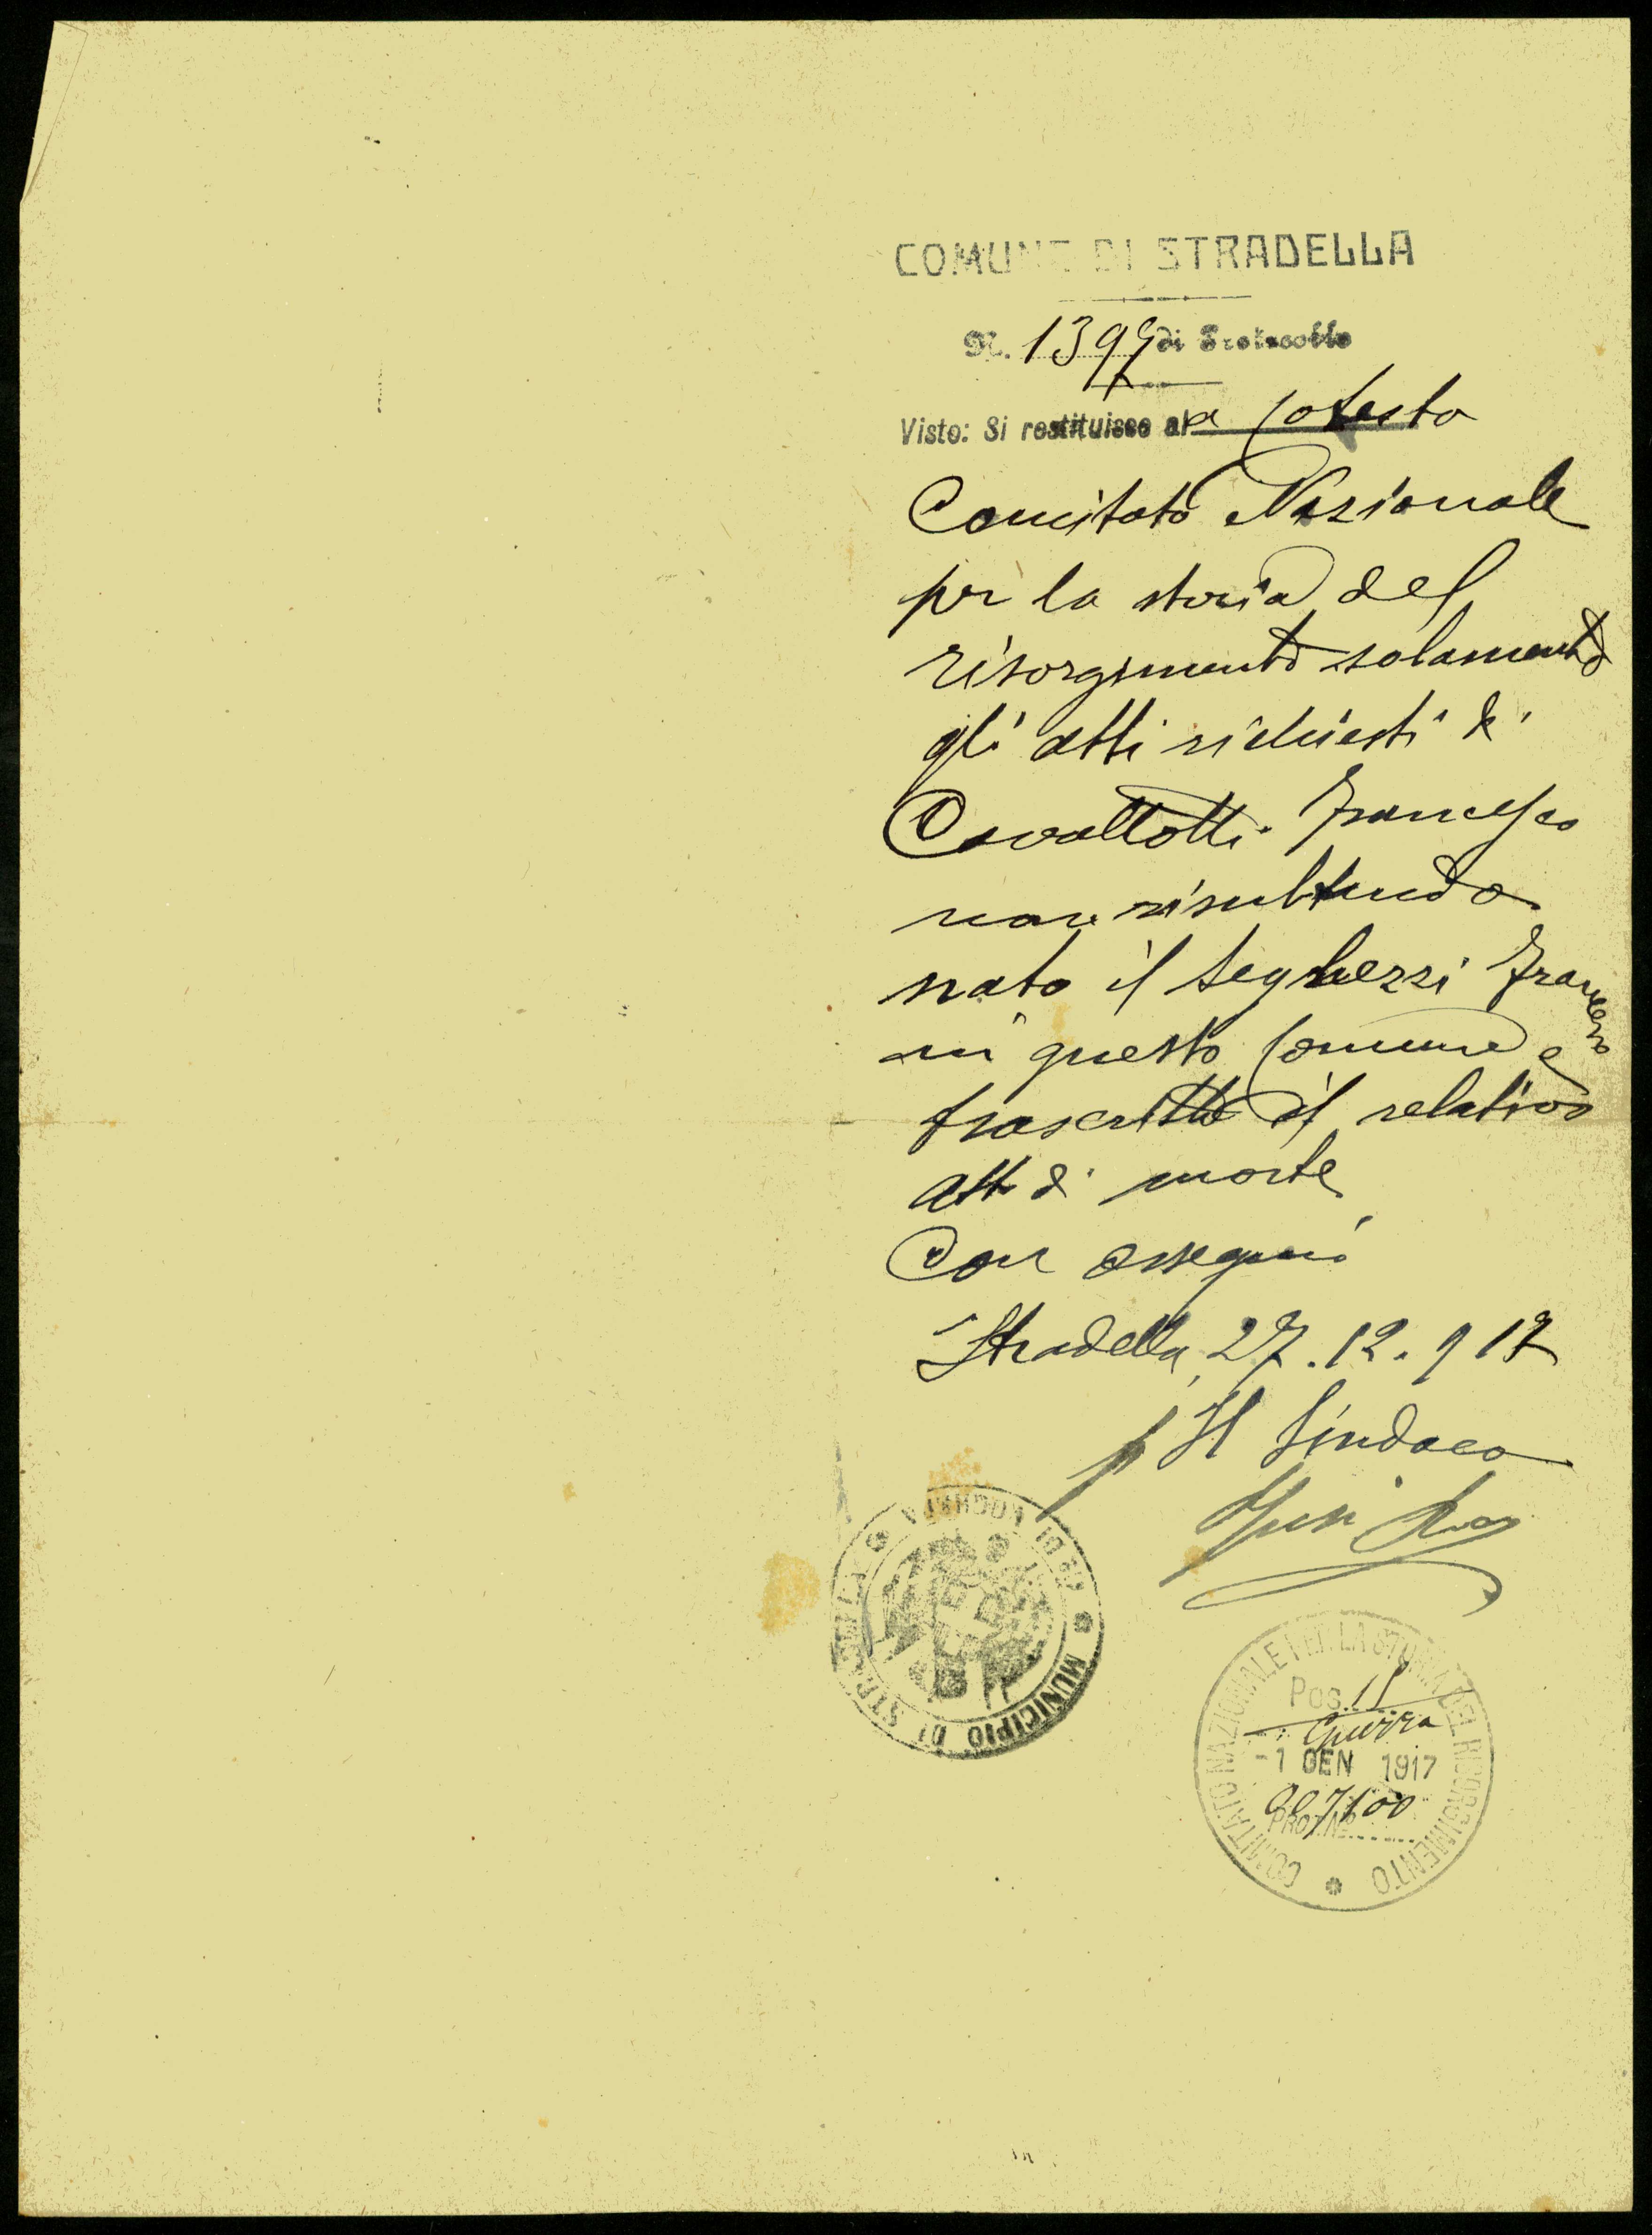 COMUNE DI STRADELLA
N. 1399 di Protocollo
Visto: Si restituisce al a Codesto
Comitato Nazionale
per la storia del
risorgimento solamente
gli atti richiesti di
Cavallotti Francesco
non risultando
nato il Seghezzi Francesco
in questo Comune e
trascritto il relativo
atto di morte
Con ossequi
Stradella, 27.12.917
p Il Sindaco
MUNICIPIO DI STRADELLA
COMITATO NAZIONALE PER LA STORIA DEL RISORGIMENTO
Pos.
Guerra
-1 GEN 1917
PROT. N°